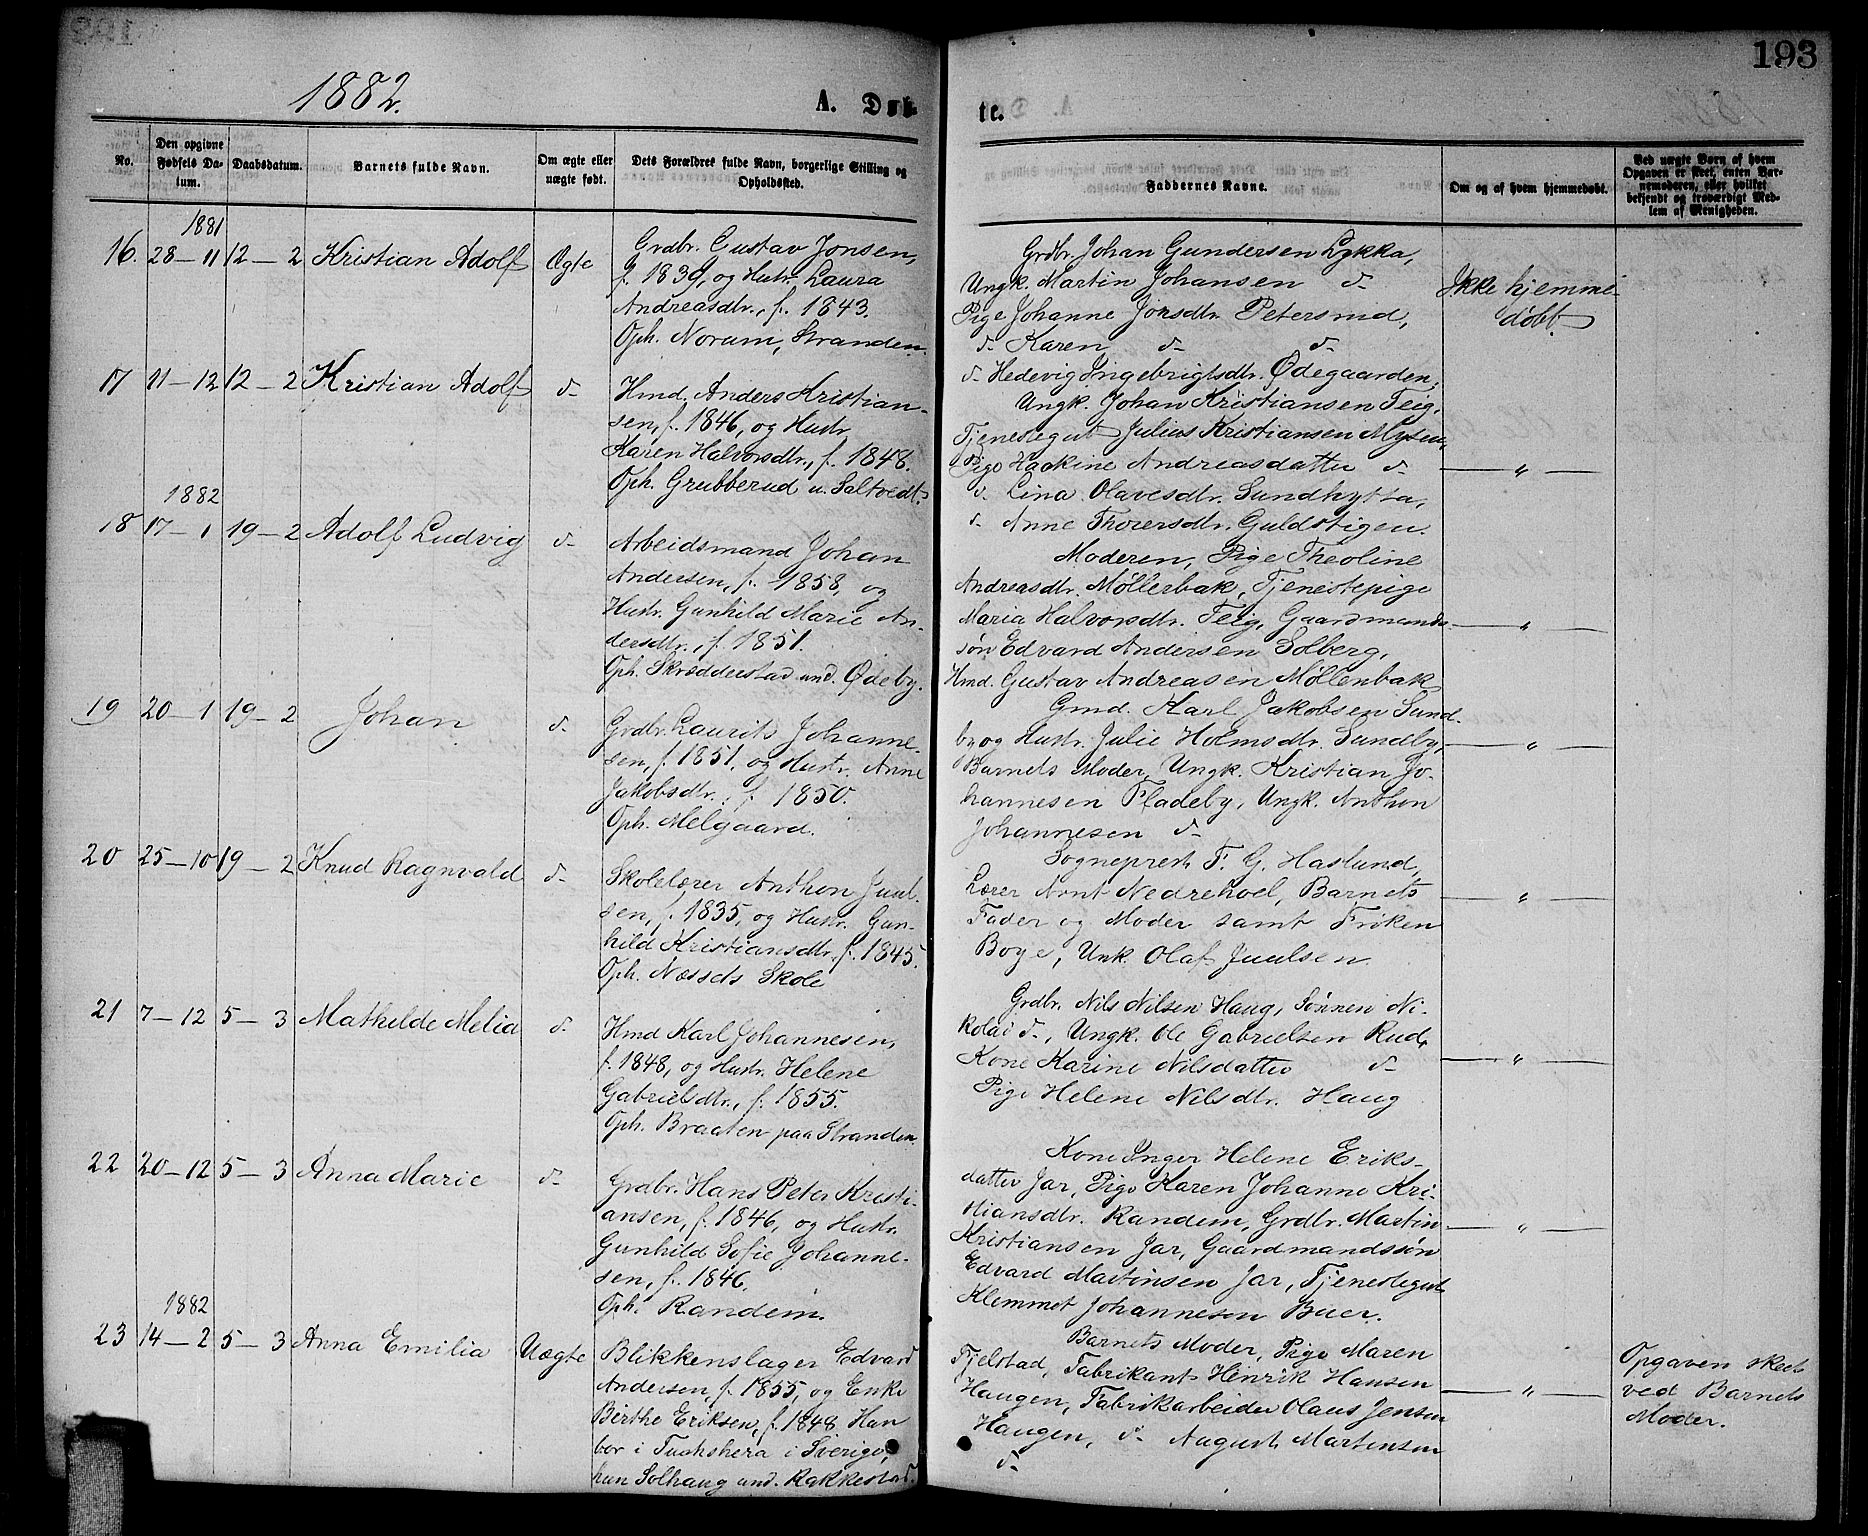 193
1882.
A. Døb-
te.
No.
Den opgivne Fødsels Da-tum.
Daabsdatum.
Barnets fulde Navn.
Om ægte eller uægte født.
Dets Forældres fulde Navn, borgerlige Stilling og Opholdssted.
Faddernes Navne.
Om og af hvem hjemmedøbt.
Ved uægte Børn af hvem Opgaven er skeet, enten Barnemoderen, eller hvilket bekjendt og troværdigt Medlem af Menigheden.
1881
16. 28–11 12–2 Kristian Adolf Ægte
Grdbr. Gustav Jonsen,
f. 1839, og Hustr. Laura
Andreasdtr., f. 1843.
Oph. Norum, Stranden.
Grdbr. Johan Gundersen Lykka,
Ungk. Martin Johansen d-
Pige Johanne Jonsdtr. Petersrud,
d- Karen d- d-
d- Hedevig Ingebrigtsdtr. Ødegaarden,
Ikke hjemme-
døbt
17 11–12 12–2 Kristian Adolf d-
Hmd. Anders Kristian-
sen, f. 1846, og Hustr.
Karen Halvorsdtr., f. 1848.
Oph. Grubberud u. Saltvedt.
Ungk. Johan Kristiansen Teig,
Tjenestegut Julius Kristiansen Mysen,
Pige Haakine Andreasdatter d-
d- Lina Olavesdtr. Sundhytta,
d- Anne Thorersdtr. Guldstigen.
— " —
1882
18 17–1 19–2 Adolf Ludvig d-
Arbeidsmand Johan
Andersen, f. 1858, og
Hustr. Gunhild Marie An-
dersdtr., f. 1851.
Oph. Skrædderstad und. Ødeby.
Moderen, Pige Theoline
Andreasdtr. Møllerbak, Tjenestepige
Maria Halvorsdtr. Teig, Gaardmands-
søn Edvard Andersen Solberg,
Hmd. Gustav Andreasen Møllenbak
— " —
19 20–1 19–2 Johan d-
Grdbr. Laurits Johanne-
sen, f. 1851, og Hustr. Anne
Jakobsdtr., f. 1850.
Oph. Melgaard.
Gmd. Karl Jakobsen Sund-
by og Hustr. Julie Holmsdtr. Sundby,
Barnets Moder, Ungk. Kristian Jo-
hannesen Fladeby, Ungk. Anthon
Johannesen d-
— " —
20 25–10 19–2 Knud Ragnvald d-
Skolelærer Anthon Juul-
sen, f. 1835, og Hustr. Gun-
hild Kristiansdtr. f. 1845.
Oph. Næssets Skole
Sogneprest F. G. Haslund,
Lærer Arnt Nedrehoel, Barnets
Fader og Moder samt Frøken
Boye, Unk. Olaf Juulsen
— " —
21 7–12 5–3 Mathilde Melia d-
Hmd Karl Johannesen,
f. 1848, og Hustr. Helene
Gabrielsdtr., f. 1855.
Oph. Braaten paa Stranden
Grdbr. Nils Nilsen Haug, Sønnen Ni-
kolai d-, Ungk. Ole Gabrielsen Rud,
Kone Karine Nilsdatter d-
Pige Helene Nilsdtr. Haug
— " —
22 20–12 5–3 Anna Marie d-
Grdbr. Hans Peter Kristi-
ansen, f. 1846, og Hustr.
Gunhild Sofie Johanne-
sen, f. 1846.
Oph. Randem.
Kone Inger Helene Eriks-
datter Jar, Pige Karen Johanne Kri-
stiansdtr. Randem, Grdbr. Martin
Kristiansen Jar, Gaardmandssøn
Edvard Martinsen Jar, Tjenestegut
Klemmet Johannesen Buer.
— " —
1882
23 14–2 5–3 Anna Emilia Uægte
Blikkenslager Edvard
Andersen, f. 1855, og Enke
Birthe Eriksen, f. 1848. Han
bor i i Sverige,
hun Solhaug und. Rakkestad.
Barnets Moder, Pige Maren
Fjelstad, Fabrikant Henrik Hansen
Haugen, Fabrikarbeider Olaus Jensen
Haugen, d- August Martinsen
d-
— " —
Opgaven skeet
ved Barnets
Moder.